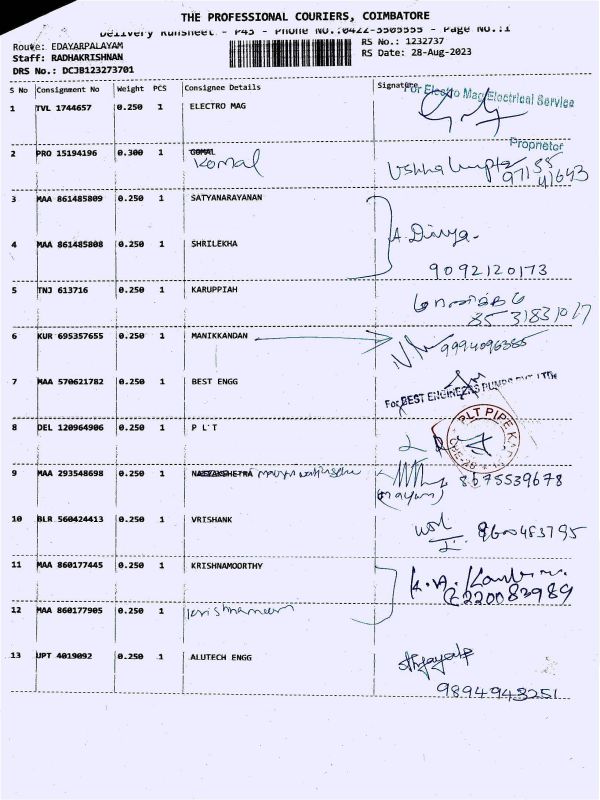 THE PROFESSIONAL COURIERS, COIMBATORE
Delivery Runsheet - P43 - Phone No.:0422-3505555 - Page No.:1
Route: EDAYARPALAYAM
RS No.: 1232737
Staff: RADHAKRISHNAN
RS Date: 28-Aug-2023
DRS No.: DCJB123273701
S No Consignment No Weight PCS Consignee Details Signature
For Electro Mag Electrical Service
1 TVL 1744657 0.250 1 ELECTRO MAG
Proprietor
2 PRO 15194196 0.300 1 GOMAL
Komal
97135
41643
3 MAA 861485809 0.250 1 SATYANARAYANAN
A. Divya
4 MAA 861485808 0.250 1 SHRILEKHA
9092120173
5 TNJ 613716 0.250 1 KARUPPIAH
6 KUR 695357655 0.250 1 MANIKKANDAN
9994096385
7 MAA 570621782 0.250 1 BEST ENGG
For BEST ENGINEERS PUMPS PVT LTD
8 DEL 120964906 0.250 1 P L T
PLT PIPE
9 MAA 293548698 0.250 1
8675539678
10 BLR 560424413 0.250 1 VRISHANK
9600483795
11 MAA 860177445 0.250 1 KRISHNAMOORTHY
12 MAA 860177905 0.250 1
13 UPT 4019092 0.250 1 ALUTECH ENGG
9894943251